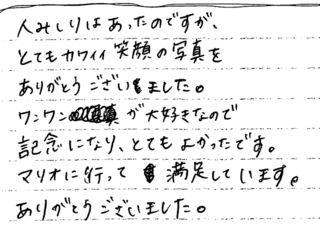 人みしりはあったのですが、
とてもカワイイ笑顔の写真を
ありがとうございました。
ワンワンが大好きなので
記念になり、とてもよかったです。
マリオに行って満足しています。
ありがとうございました。